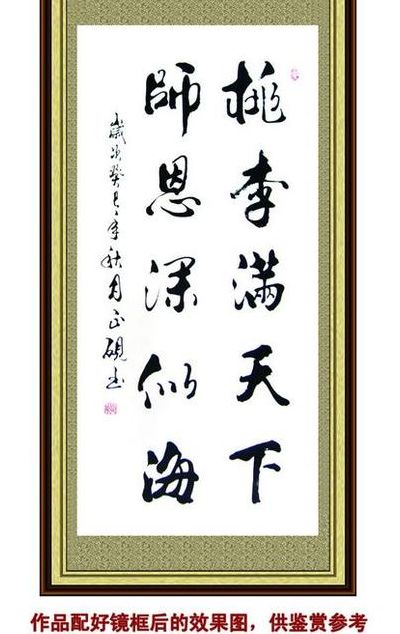 桃李滿天下
師恩深似海
歲次癸巳年秋月正硯书
作品配好镜框后的效果图，供鉴赏参考